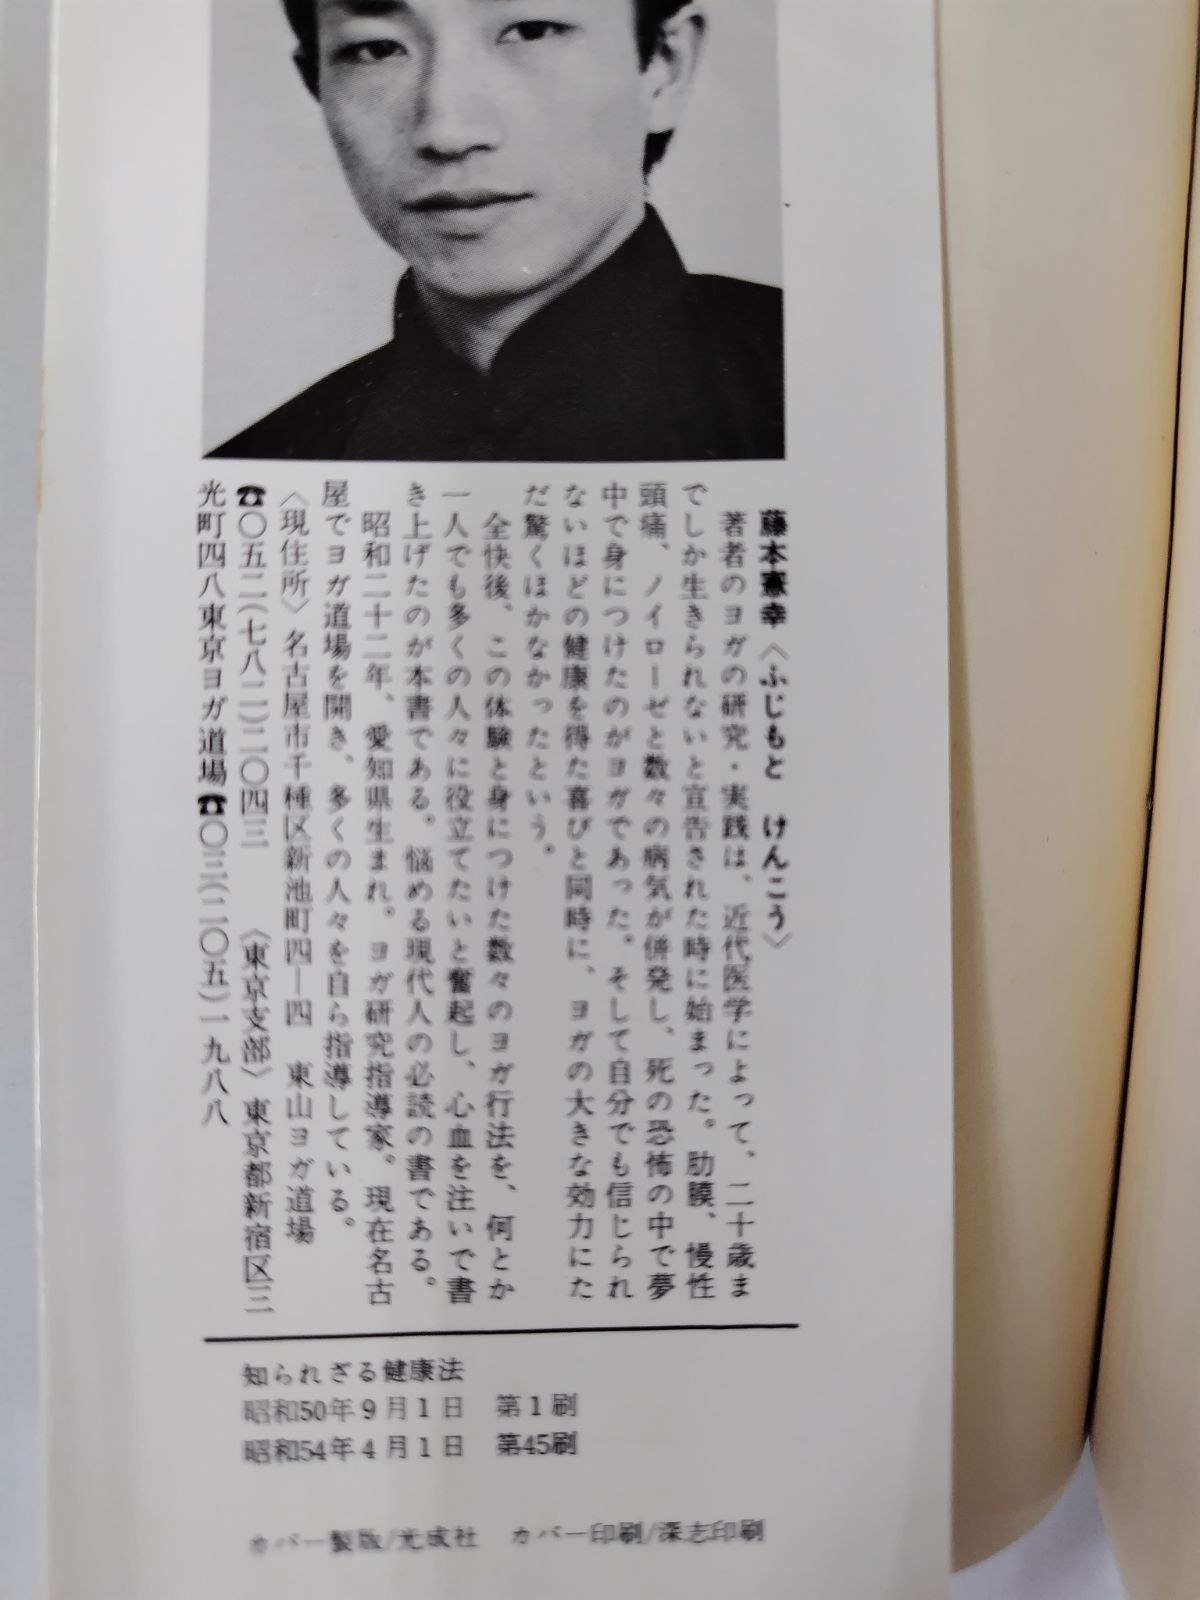 藤本憲幸〈ふじもと　けんこう〉
著者のヨガの研究・実践は、近代医学によって、二十歳ま
でしか生きられないと宣告された時に始まった。肋膜、慢性
頭痛、ノイローゼと数々の病気が併発し、死の恐怖の中で夢
中で身につけたのがヨガであった。そして自分でも信じられ
ないほどの健康を得た喜びと同時に、ヨガの大きな効力にた
だ驚くほかなかったという。
全快後、この体験と身につけた数々のヨガ行法を、何とか
一人でも多くの人々に役立てたいと奮起し、心血を注いで書
き上げたのが本書である。悩める現代人の必読の書である。
昭和二十二年、愛知県生まれ。ヨガ研究指導家。現在名古
屋でヨガ道場を開き、多くの人々を自ら指導している。
〈現住所〉名古屋市千種区新池町四―四　東山ヨガ道場
☎〇五二(七八二)二〇四三　〈東京支部〉東京都新宿区三
光町四八東京ヨガ道場☎〇三(二〇五)一九八八
知られざる健康法
昭和50年9月1日　第1刷
昭和54年4月1日　第45刷
カバー製版/光成社　カバー印刷/深志印刷